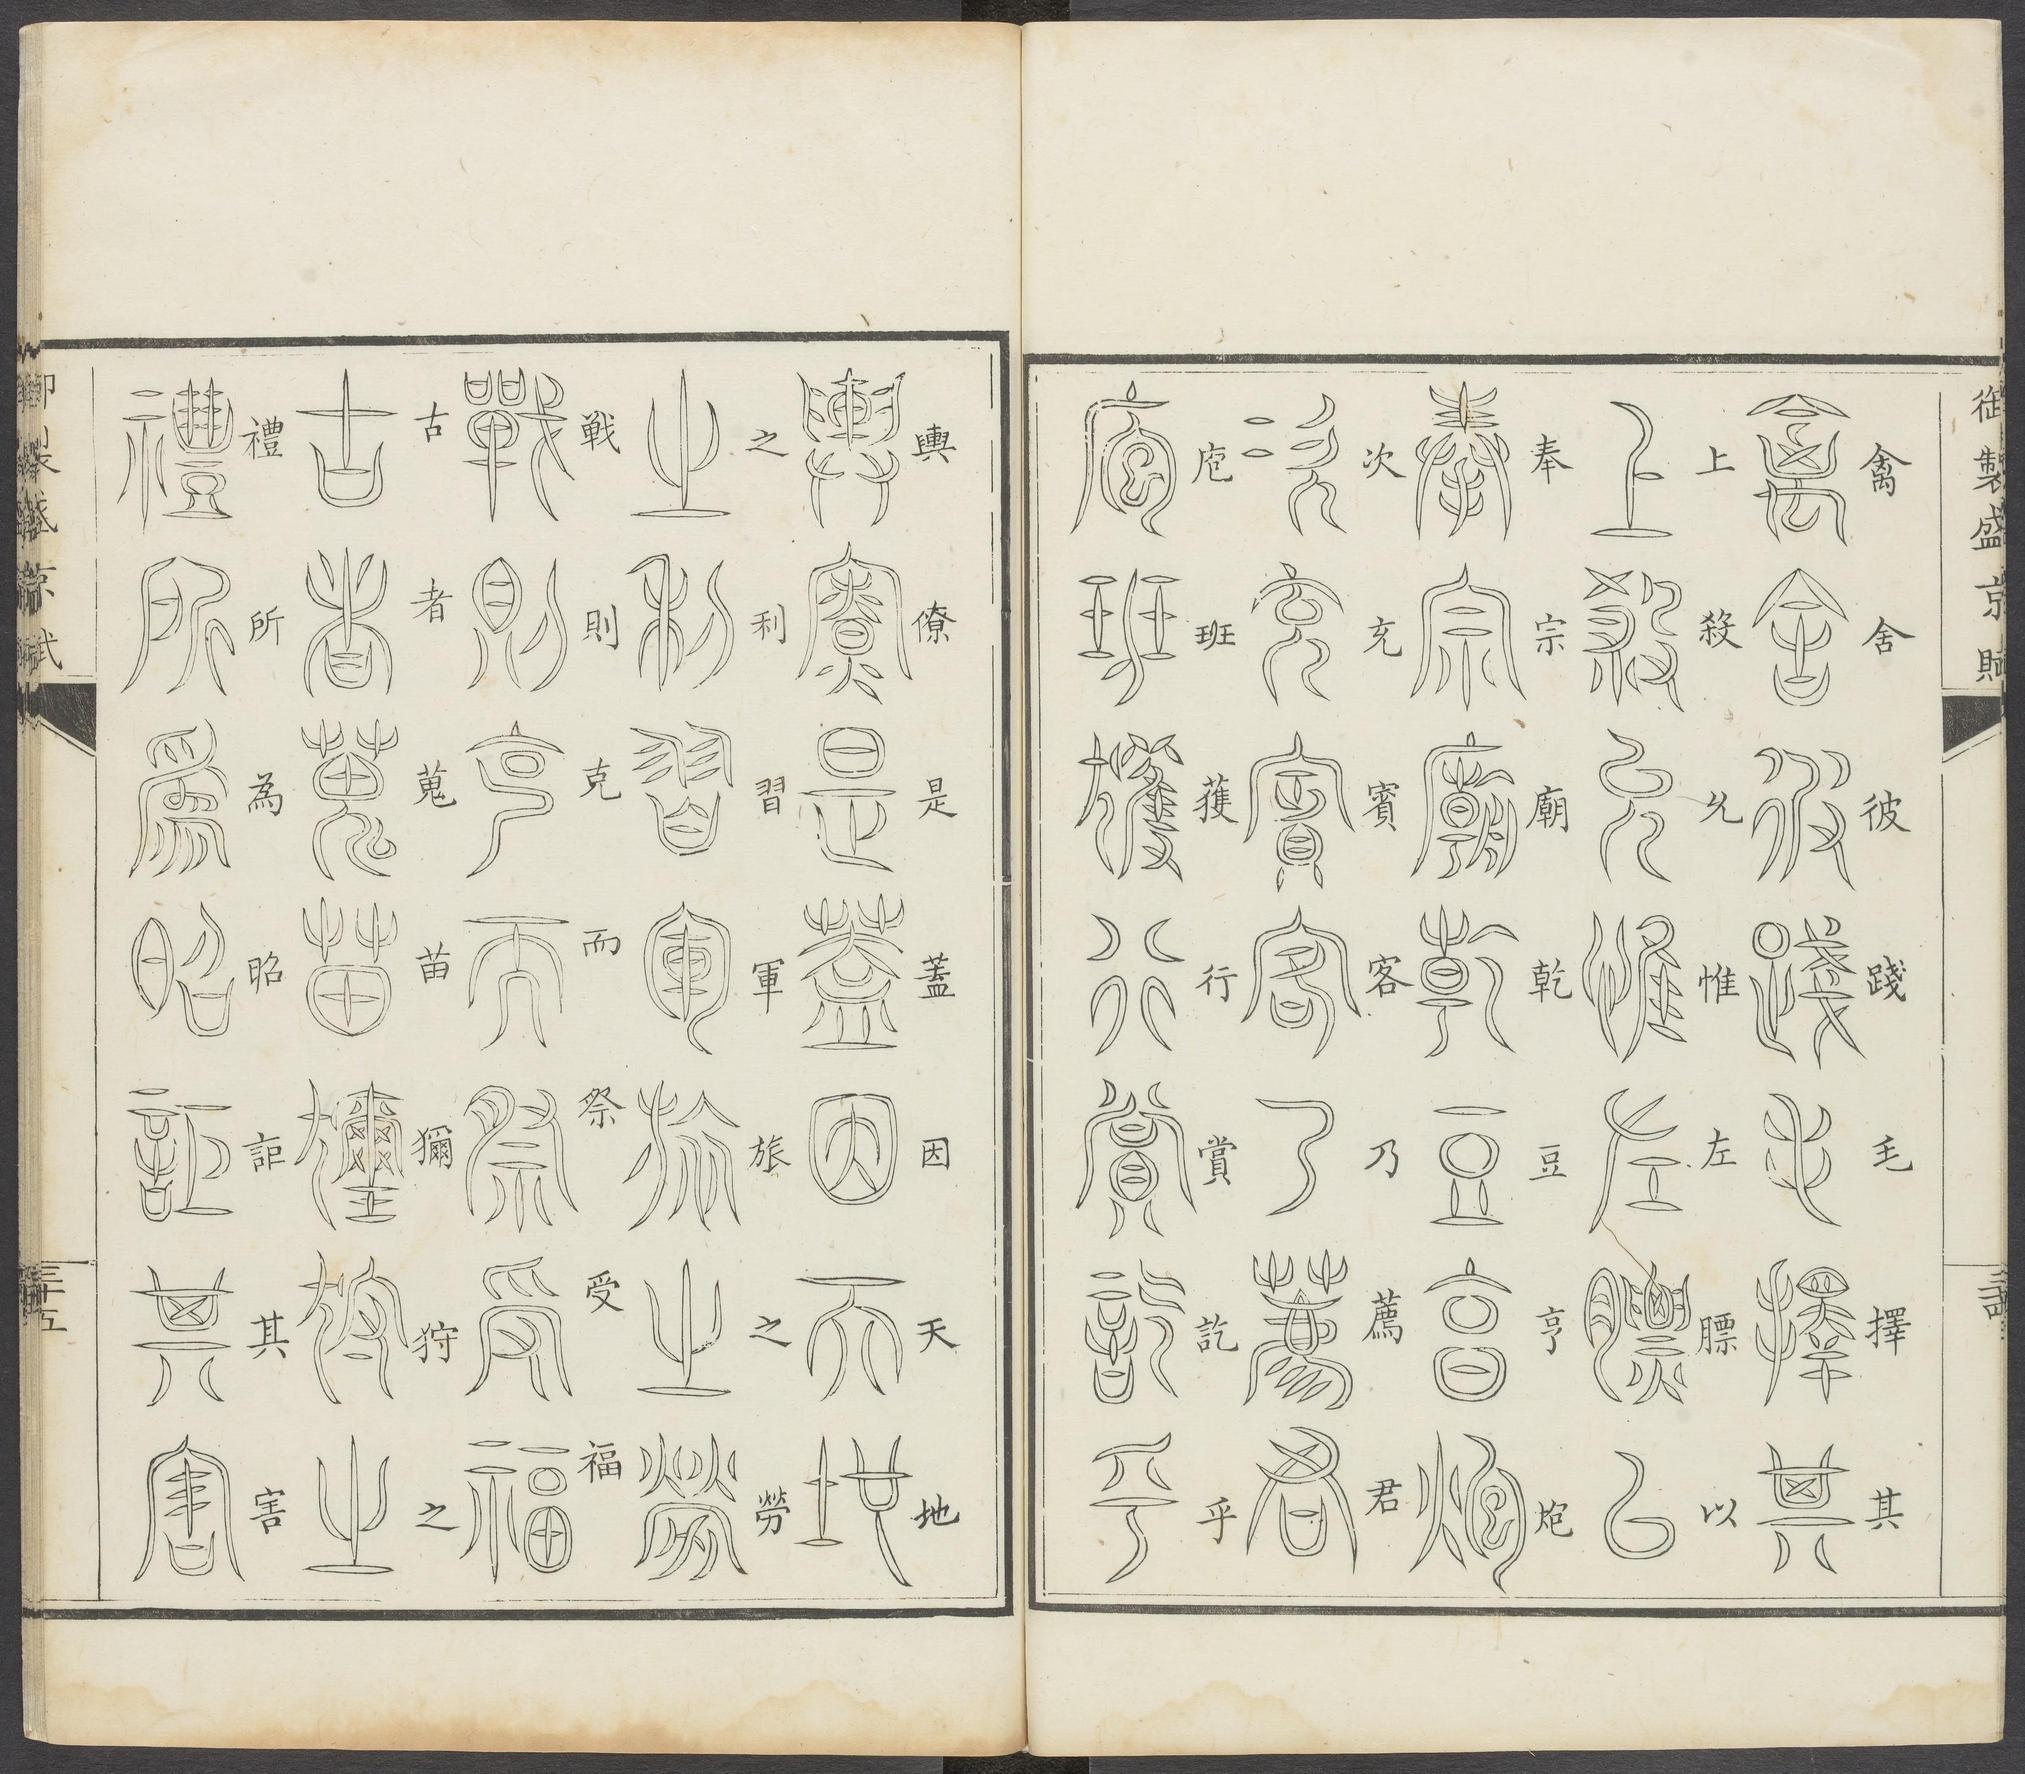 御製盛京賦
禽舍彼踐毛擇其
上殺允惟左膘以
奉宗廟乾豆亨炮
次充賓客乃薦君
庖班獲行賞訖乎
輿僚是蓋因天地
之利習軍旅之勞
戰則克而祭受福
古者蒐苗獮狩之
禮所為昭詎其害
御製盛京賦
三十五